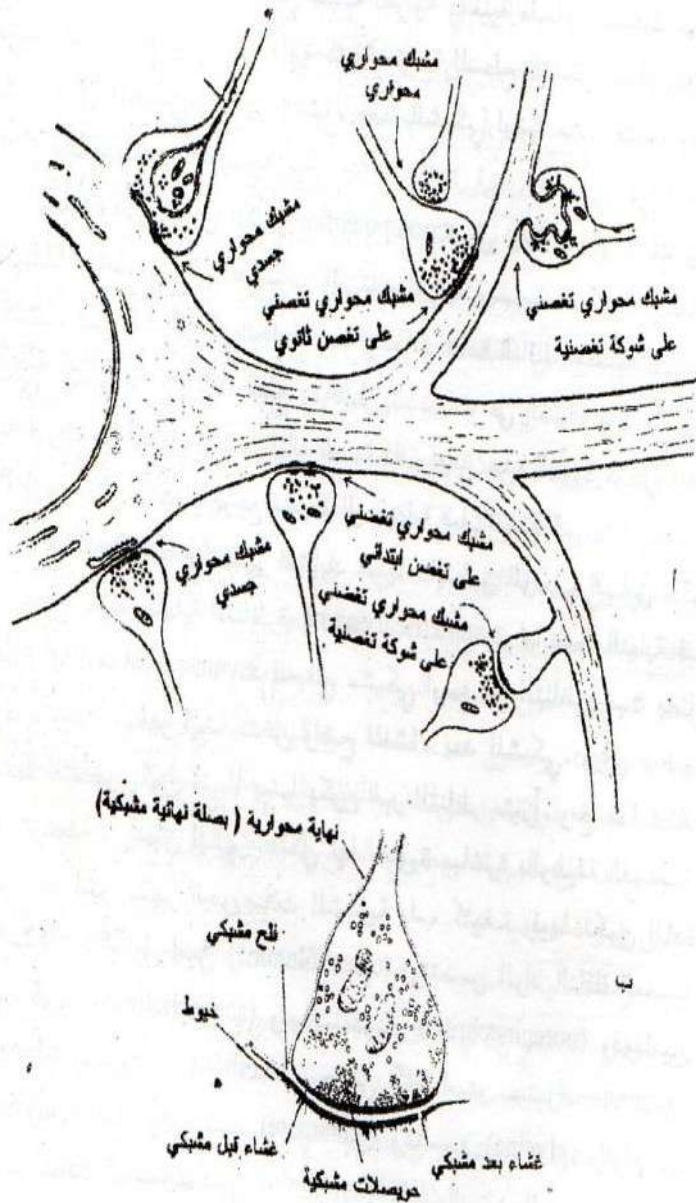 مشبك محواري
محواري
مشبك محواري
جسدي
مشبك محواري تغصني
على تغصن ثانوي
مشبك محواري تغصني
على شوكة تغصنية
مشبك محواري
جسدي
مشبك محواري تغصني
على تغصن ابتدائي
مشبك محواري تغصني
على شوكة تغصنية
نهاية محوارية ( بصلة نهائية مشبكية)
فلح مشبكي
ب
خيوط
غشاء قبل مشبكي
غشاء بعد مشبكي
حويصلات مشبكية